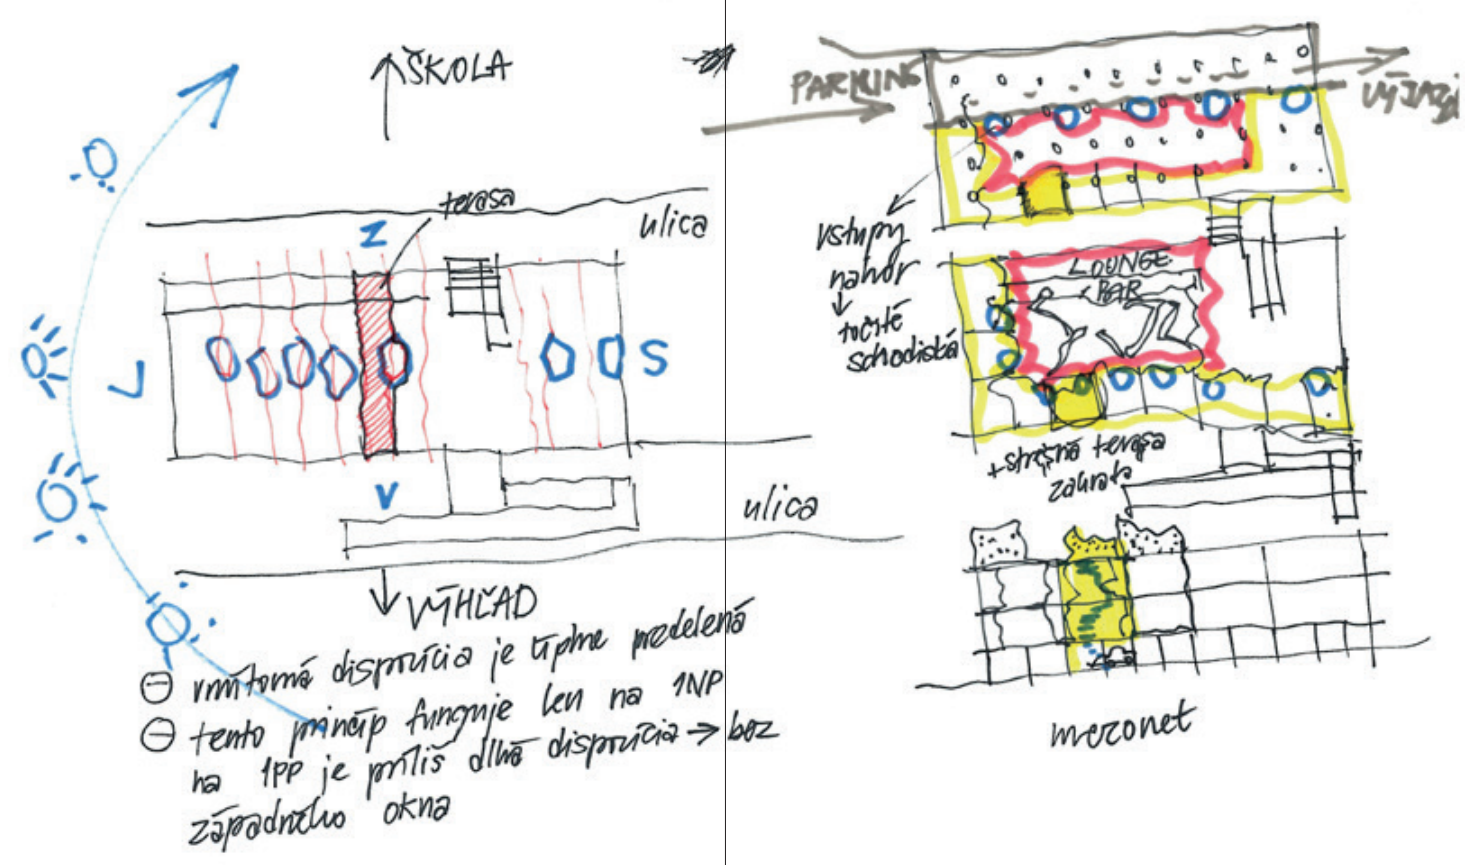 ŠKOLA
terasa
ulica
Z
J
S
V
ulica
VÝHĽAD
⊖ vnútorná dispozícia je úplne predelená
⊖ tento princíp funguje len na 1NP
na 1PP je príliš dlhá dispozícia → bez
západného okna
PARKING
VÝJAZD
vstupy
nahor
↓
točité
schodiská
LOUNGE
BAR
+ strešná terasa
zahrada
mezonet